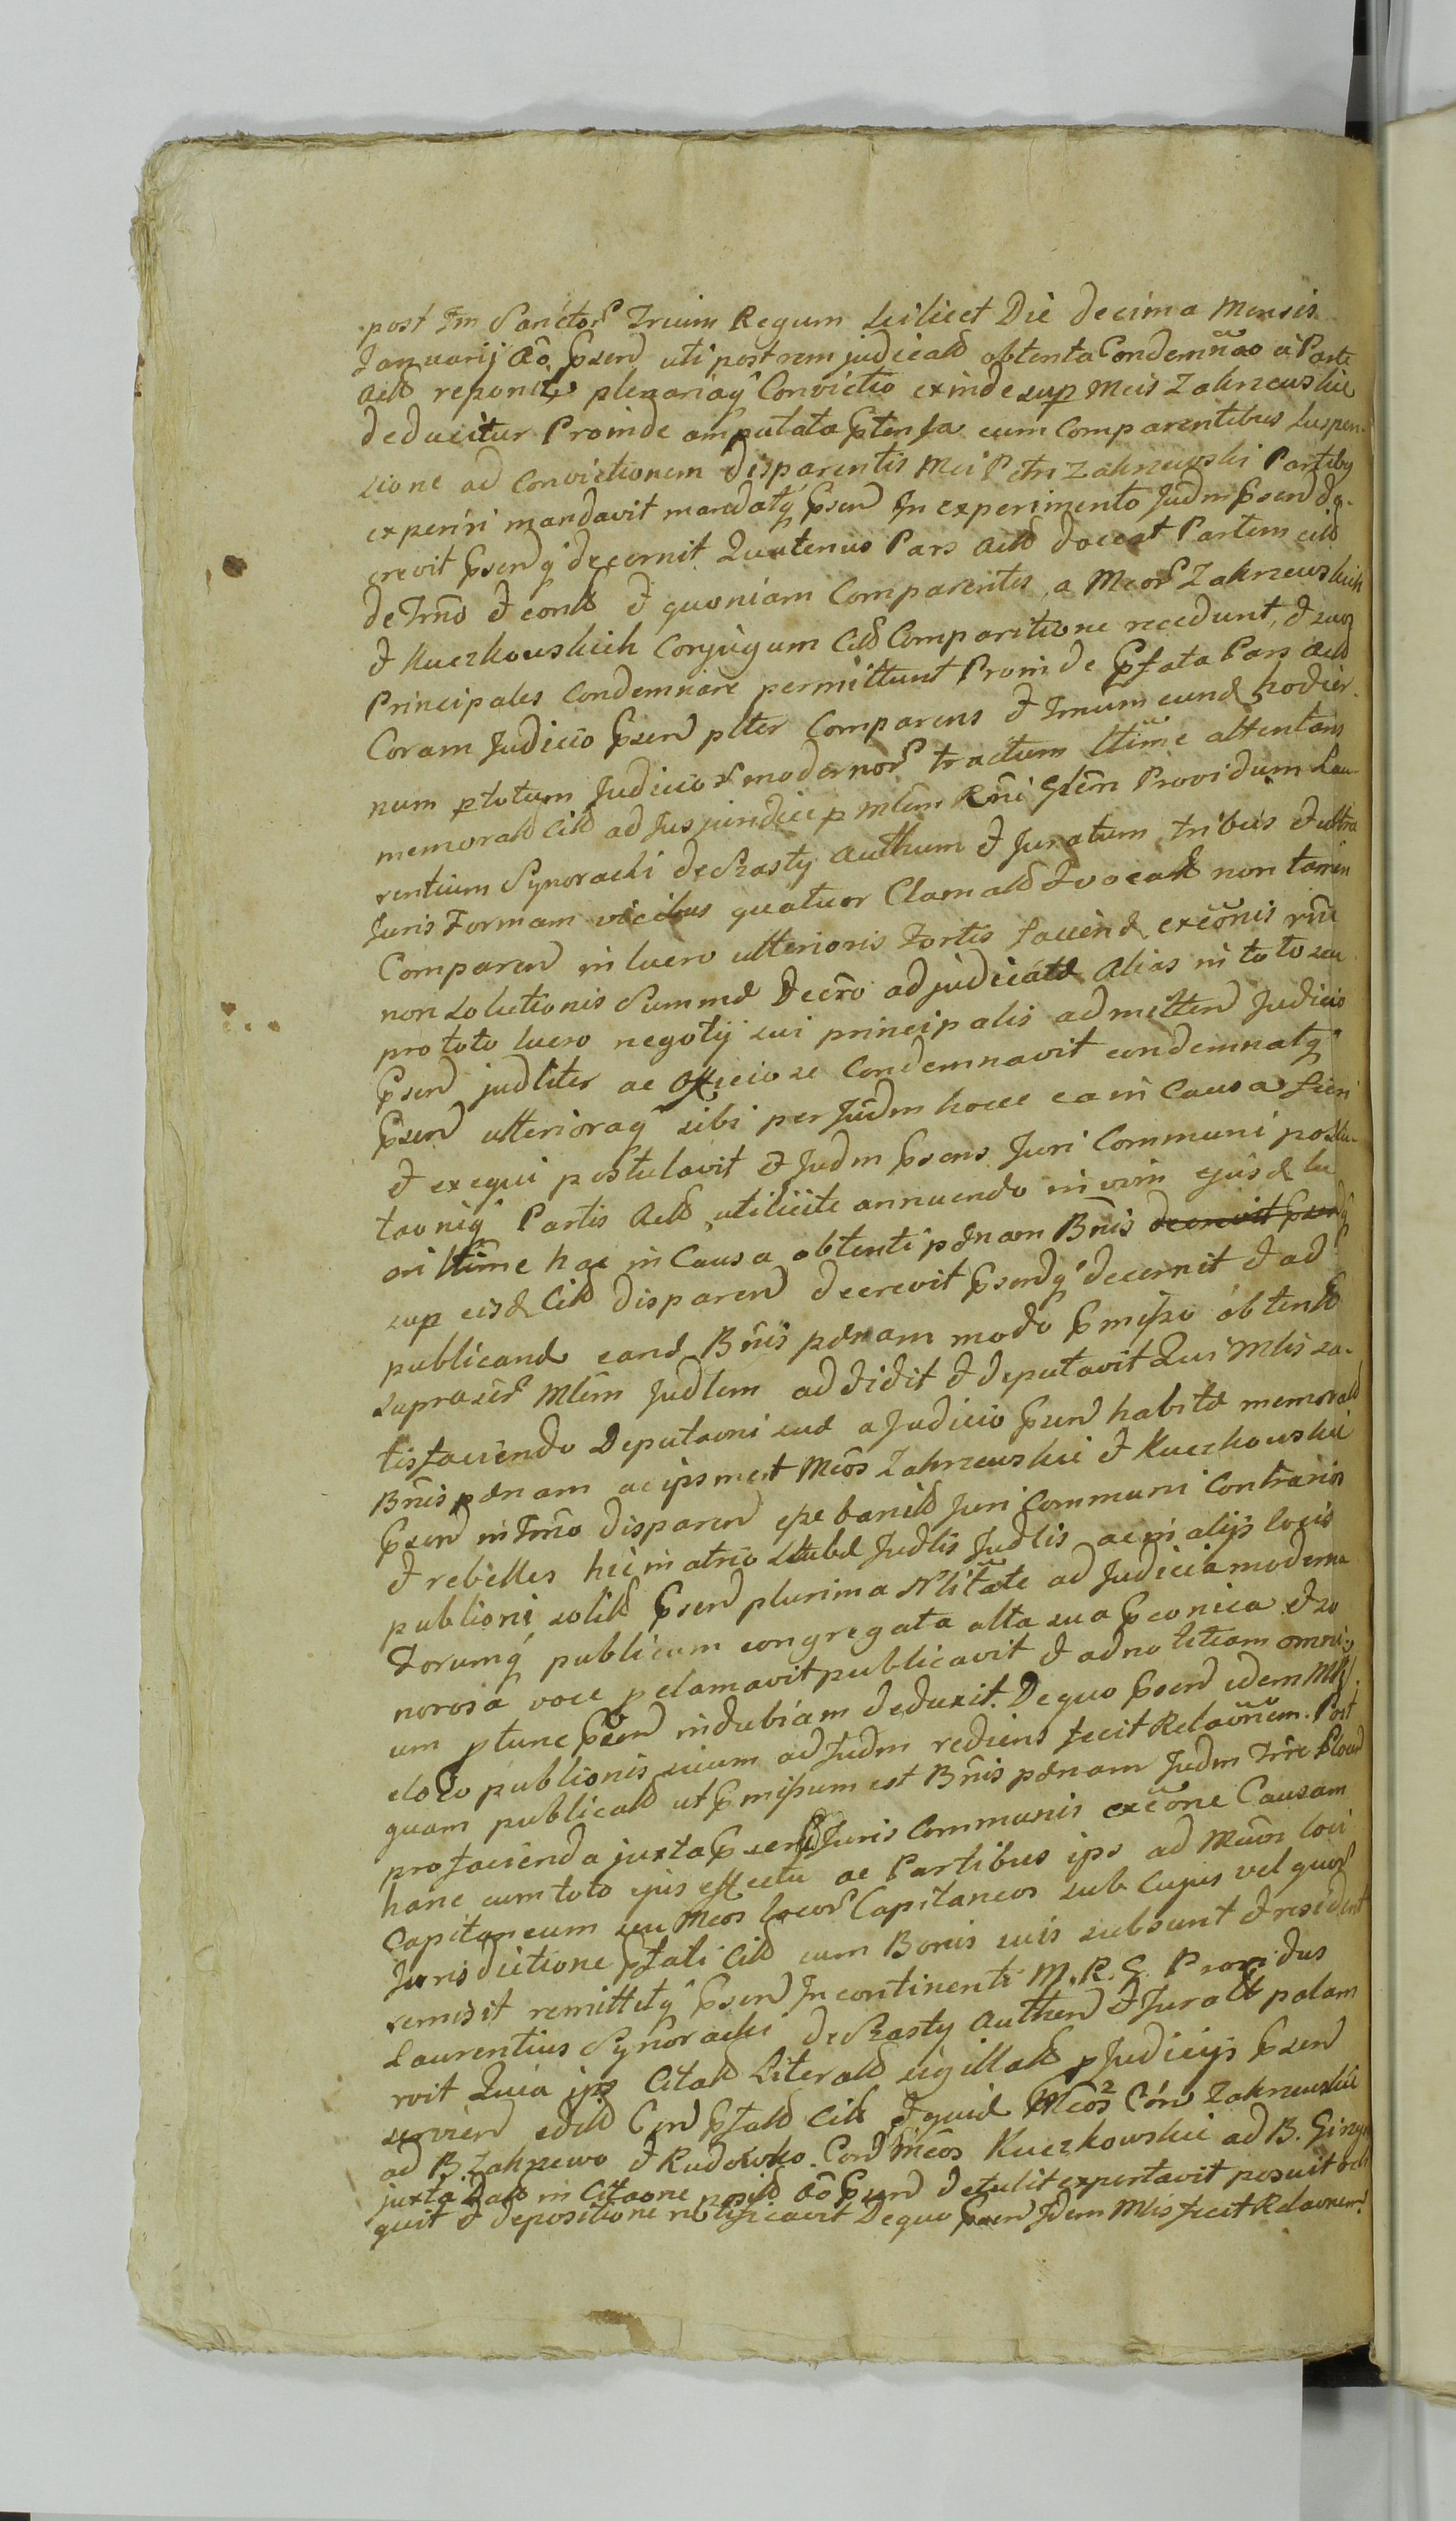 post Fm Sanctor Trium Regum scilicet Die decima Mensis
Januarij Ao Psend uti post rem judicald obtenta Condemnao a Parte
Actd reponit plenariaq Convictio exinde sup Mcis Zakrzewskie
deducitur Proinde amputata Ptensa cum Comparentibus suspen-
sione ad Convictionem disparentis Mci Petri Zakrzewski Partibq
experiri mandavit mandatq Psend In experimento Judm Psend de-
crevit Psendq decernit Quatenus Pars Actd doceat Partem citd
de Trno et contd et quoniam Comparentes, a Mcor Zakrzewskich
et Kuczkowskich Conjugum Citd Comparitione recedunt, et suos
Principales Condemnare permittunt Proinde Pfata Pars Actd
Coram Judicio Psend plter Comparens et Trnum eund hodier-
num ptotum Judicior modernor tractum ltime attentans
memorald Citd ad Jus juridice p Mlem Rni Glem Providum Lau-
rentium Synoracki de Szasty Authum et Juratum tribus et ultra
Juris Formam vicibus quatuor Clamald et vocald non tamen
Comparend in lucro ulterioris Fortis faciend exeonis rni
non solutionis Summæ Decro adjudicatæ alias in toto seu
pro toto lucro negotij sui principalis admittend Judicio
Psend judliter ac Officiose Condemnavit condemnatq
Psend ulterioraq sibi per Judm hocce ea in Causa fieri
et exequi postulavit et Judm Psens Juri Communi postu-
taoniq Partis Actd utilicite annuendo in vim ejusd lu
cri ltime hac in Causa obtenti pænam Bnis decrevit Psendq
sup eisd Citd disparend decrevit Psendq decernit et ad
publicand eand Bnis pænam modo Pmisso obtentd
suprascr Mlem Judlem addidit et deputavit Qui Mlis sa-
tisfaciendo Deputaoni suæ a Judicio Psend habitæ memorald
Bnis pænam ac ipsmet Mcos Zakrzewskie et Kuczkowskie
Psend in Trno disparend esse banitd Juri Communi Contrarios
et rebelles hic in atrio Stubæ Judlis Judlis ac in alijs locis
publioni solitd Psend plurima Nlitate ad Judicia moderna
Forumq publicum congregata alta sua Pconica et so
norosa voce pclamavit publicavit et ad notitiam omni-
um ptunc Psend indubiam deduxit. De quo Psend idem Mls
eloco publionis suum ad Judm rediens fecit Relaonem. Post
quam publicald ut Pmissum est Bnis pænam Judm Trre
pro facienda juxta Psend Juris Communis exeone Causam
hanc cum toto ejus effectu ac Partibus ips ad Mcum loci
Capitaneum seu Mcos locor Capitaneos sub Cujus vel quor
Jurisdictione Pfati Citd cum Bonis suis subsunt et resident
remisit remittitq Psend In continenti M. R. G. Providus
Laurentius Synoracki de Szasty Authend et Jurald palam
rvit Quia ips Citald Literald sigillald p Judicijs Psend
serviend editd Cond Pfald Citd et quid Mcos 2 Con Zakrzewskie
ad B. Zakrzewo et Rudowko. Cord Mcos Kuczkowskie ad B.
juxta Datd in Citaone positd Ao Psend detulit exportavit posuit
quit et depositione notificavit De quo Psend Idem Mlis fecit Relaonem